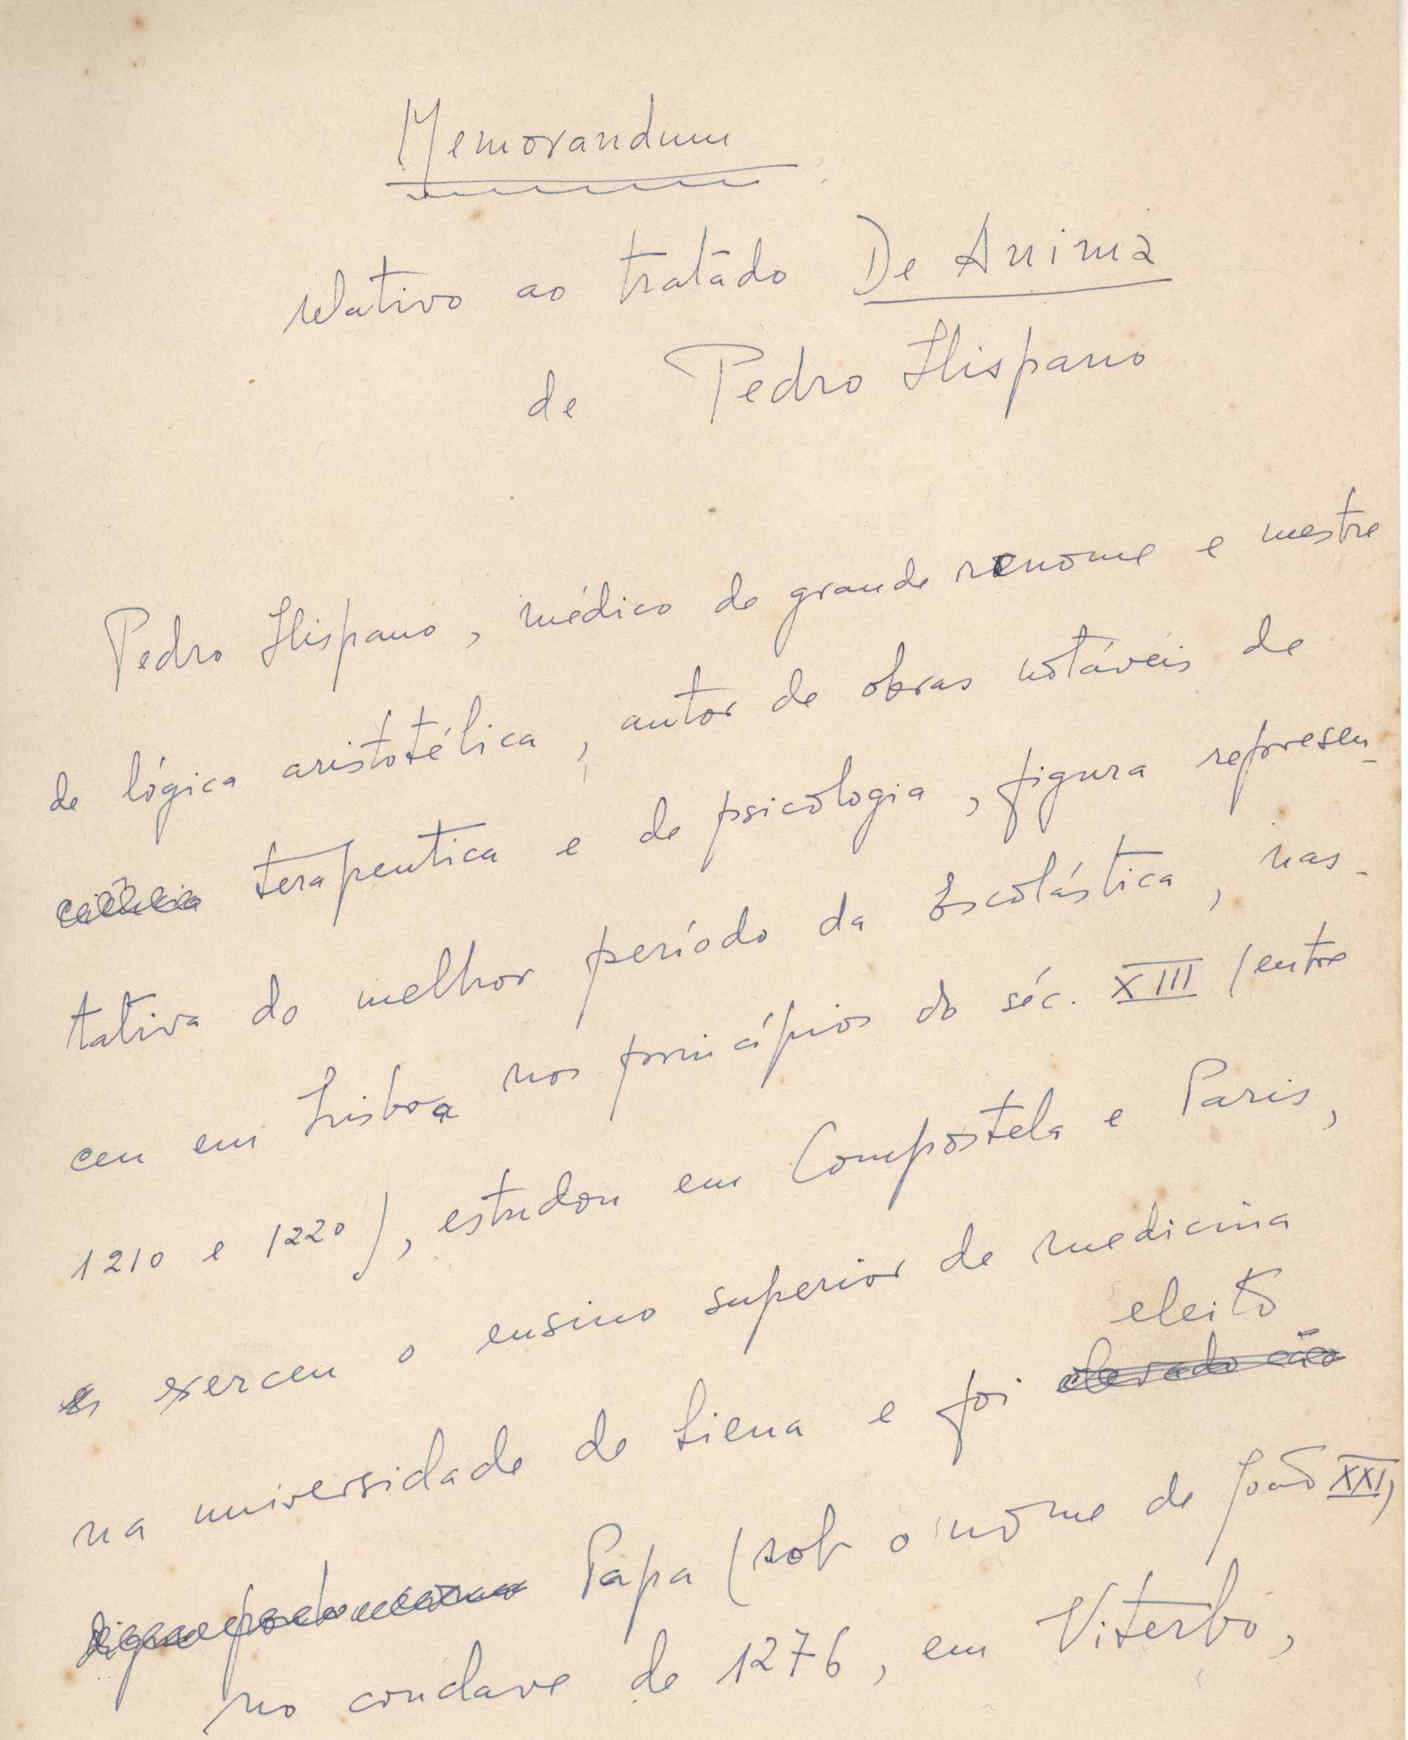 Memorandum
relativo ao tratado De Anima
de Pedro Hispano
Pedro Hispano, médico de grande renome e mestre
de lógica aristotélica, autor de obras notáveis de
terapeutica e de psicologia, figura represen-
tativa do melhor período da Escolástica, nas-
ceu em Lisboa nos princípios do séc. XIII (entre
1210 e 1220), estudou em Compostela e Paris,
exerceu o ensino superior de medicina
eleito
na universidade de Siena e foi elevado ao
Papa (sob o nome de João XXI)
no conclave de 1276, em Viterbo,